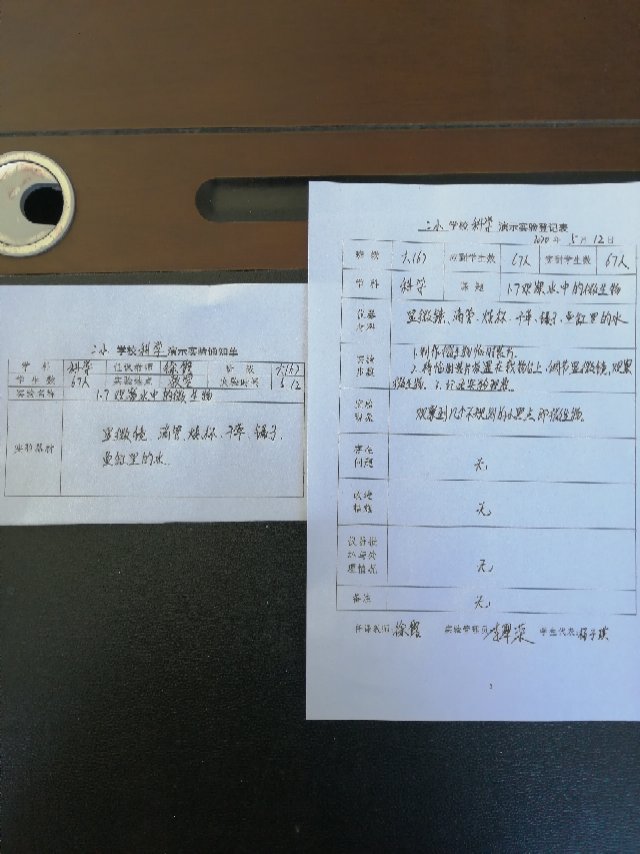 二小 学校 科学 演示实验通知单
学科 科学 任课教师 徐霞 班级
学生数 67人 实验地点 教室 实验时间
实验名称 1.7观察水中的微生物
实验器材 显微镜、滴管、烧杯、干草、镊子、
鱼缸里的水
二小 学校 科学 演示实验登记表
2020年5月12日
班级 应到学生数 67人 实到学生数 67人
学科 科学 课题 1.7观察水中的微生物
仪器 显微镜、滴管、烧杯、干草、镊子、鱼缸里的水
实验 1.制作微生物临时装片。
步骤 2.将临时装片放置在载物台上,调节显微镜,观察
微生物。3.记录实验现象。
实验 观察到几个不规则的小黑点即微生物。
存在
问题 无
改进
措施 无
无
备注 无
任课教师: 徐霞 实验管理员: 学生代表: